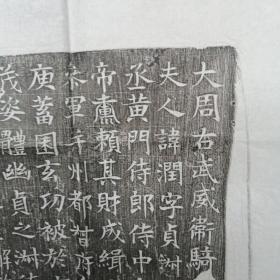 大周右武威衛騎
夫人諱潤字貞
丞黃門侍郎侍中
帝熏賴其財成緝
州都督府
庾蓄困玄功被於
義姿體幽貞之